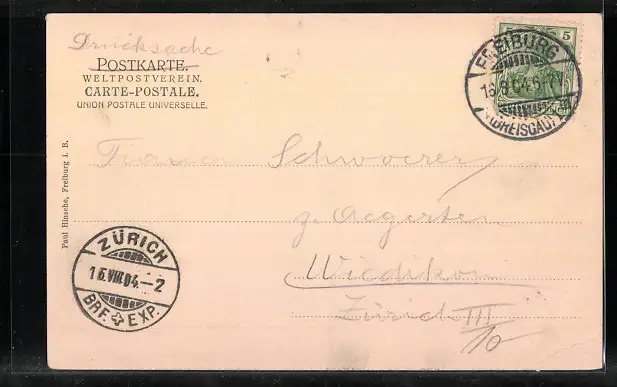 Drucksache
POSTKARTE.
WELTPOSTVEREIN.
CARTE-POSTALE.
UNION POSTALE UNIVERSELLE.
5 5
FREIBURG
16.8.04.6-7V
(BREISGAU)
Schwoerer
z. Aegerten
Wiedikon
Zürich III
Paul Hinsche, Freiburg i. B.
ZÜRICH
16.VIII.04.–2
BRF. EXP.